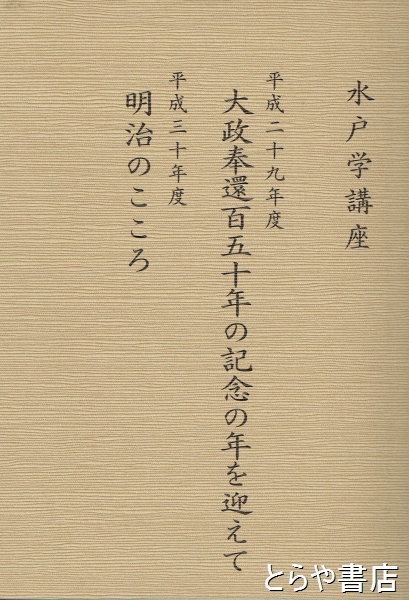 水戸学講座
平成二十九年度
大政奉還百五十年の記念の年を迎えて
平成三十年度
明治のこころ
とらや書店